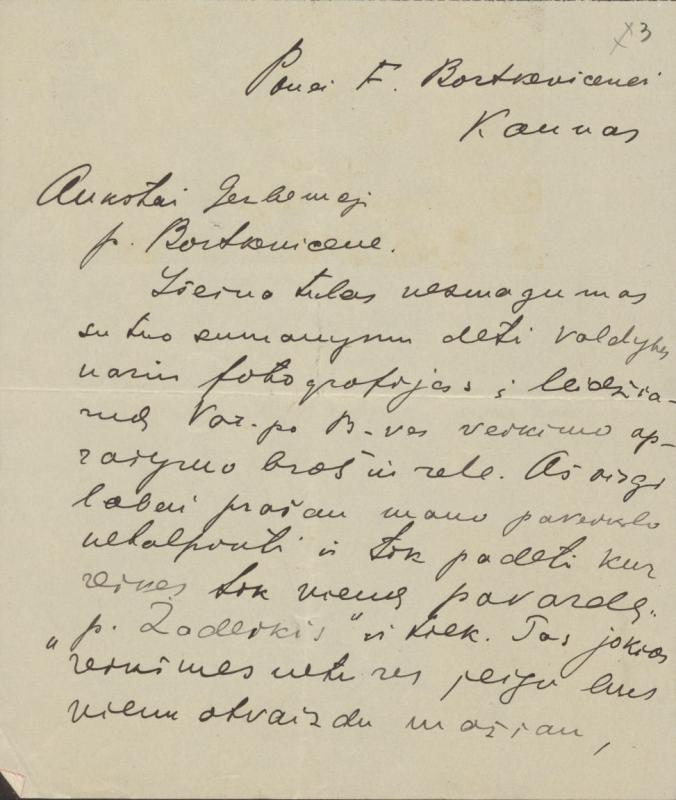 3
Ponei F. Bortkevicenei
Kaunas
Aukštai Gerbemaji
p. Bortkevicene.
Išeina tulas nesmagumas
su tuo sumanymu dėti valdybos
nariu fotografijas į leidžia-
mą Var.po B-ves veikimo ap-
rašymo brošiurele. Aš visgi
labai prašau mano paveikslo
netalpinti ir tik padėti kur
reikes tik vieną pavardę.
„p. Žadeikis" ir tiek. Tas jokios
reikšmes netures jeigu bus
vienu atvaizdu mažiau,